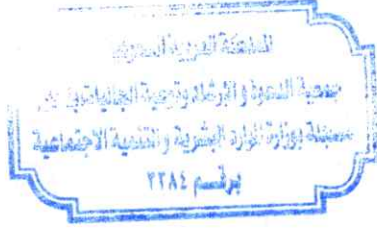 المملكة العربية السعودية
جمعية الدعوة و الإرشاد وتوعية الجاليات
مسجلة بوزارة الموارد البشرية و التنمية الاجتماعية
برقم ٢٢٨٤